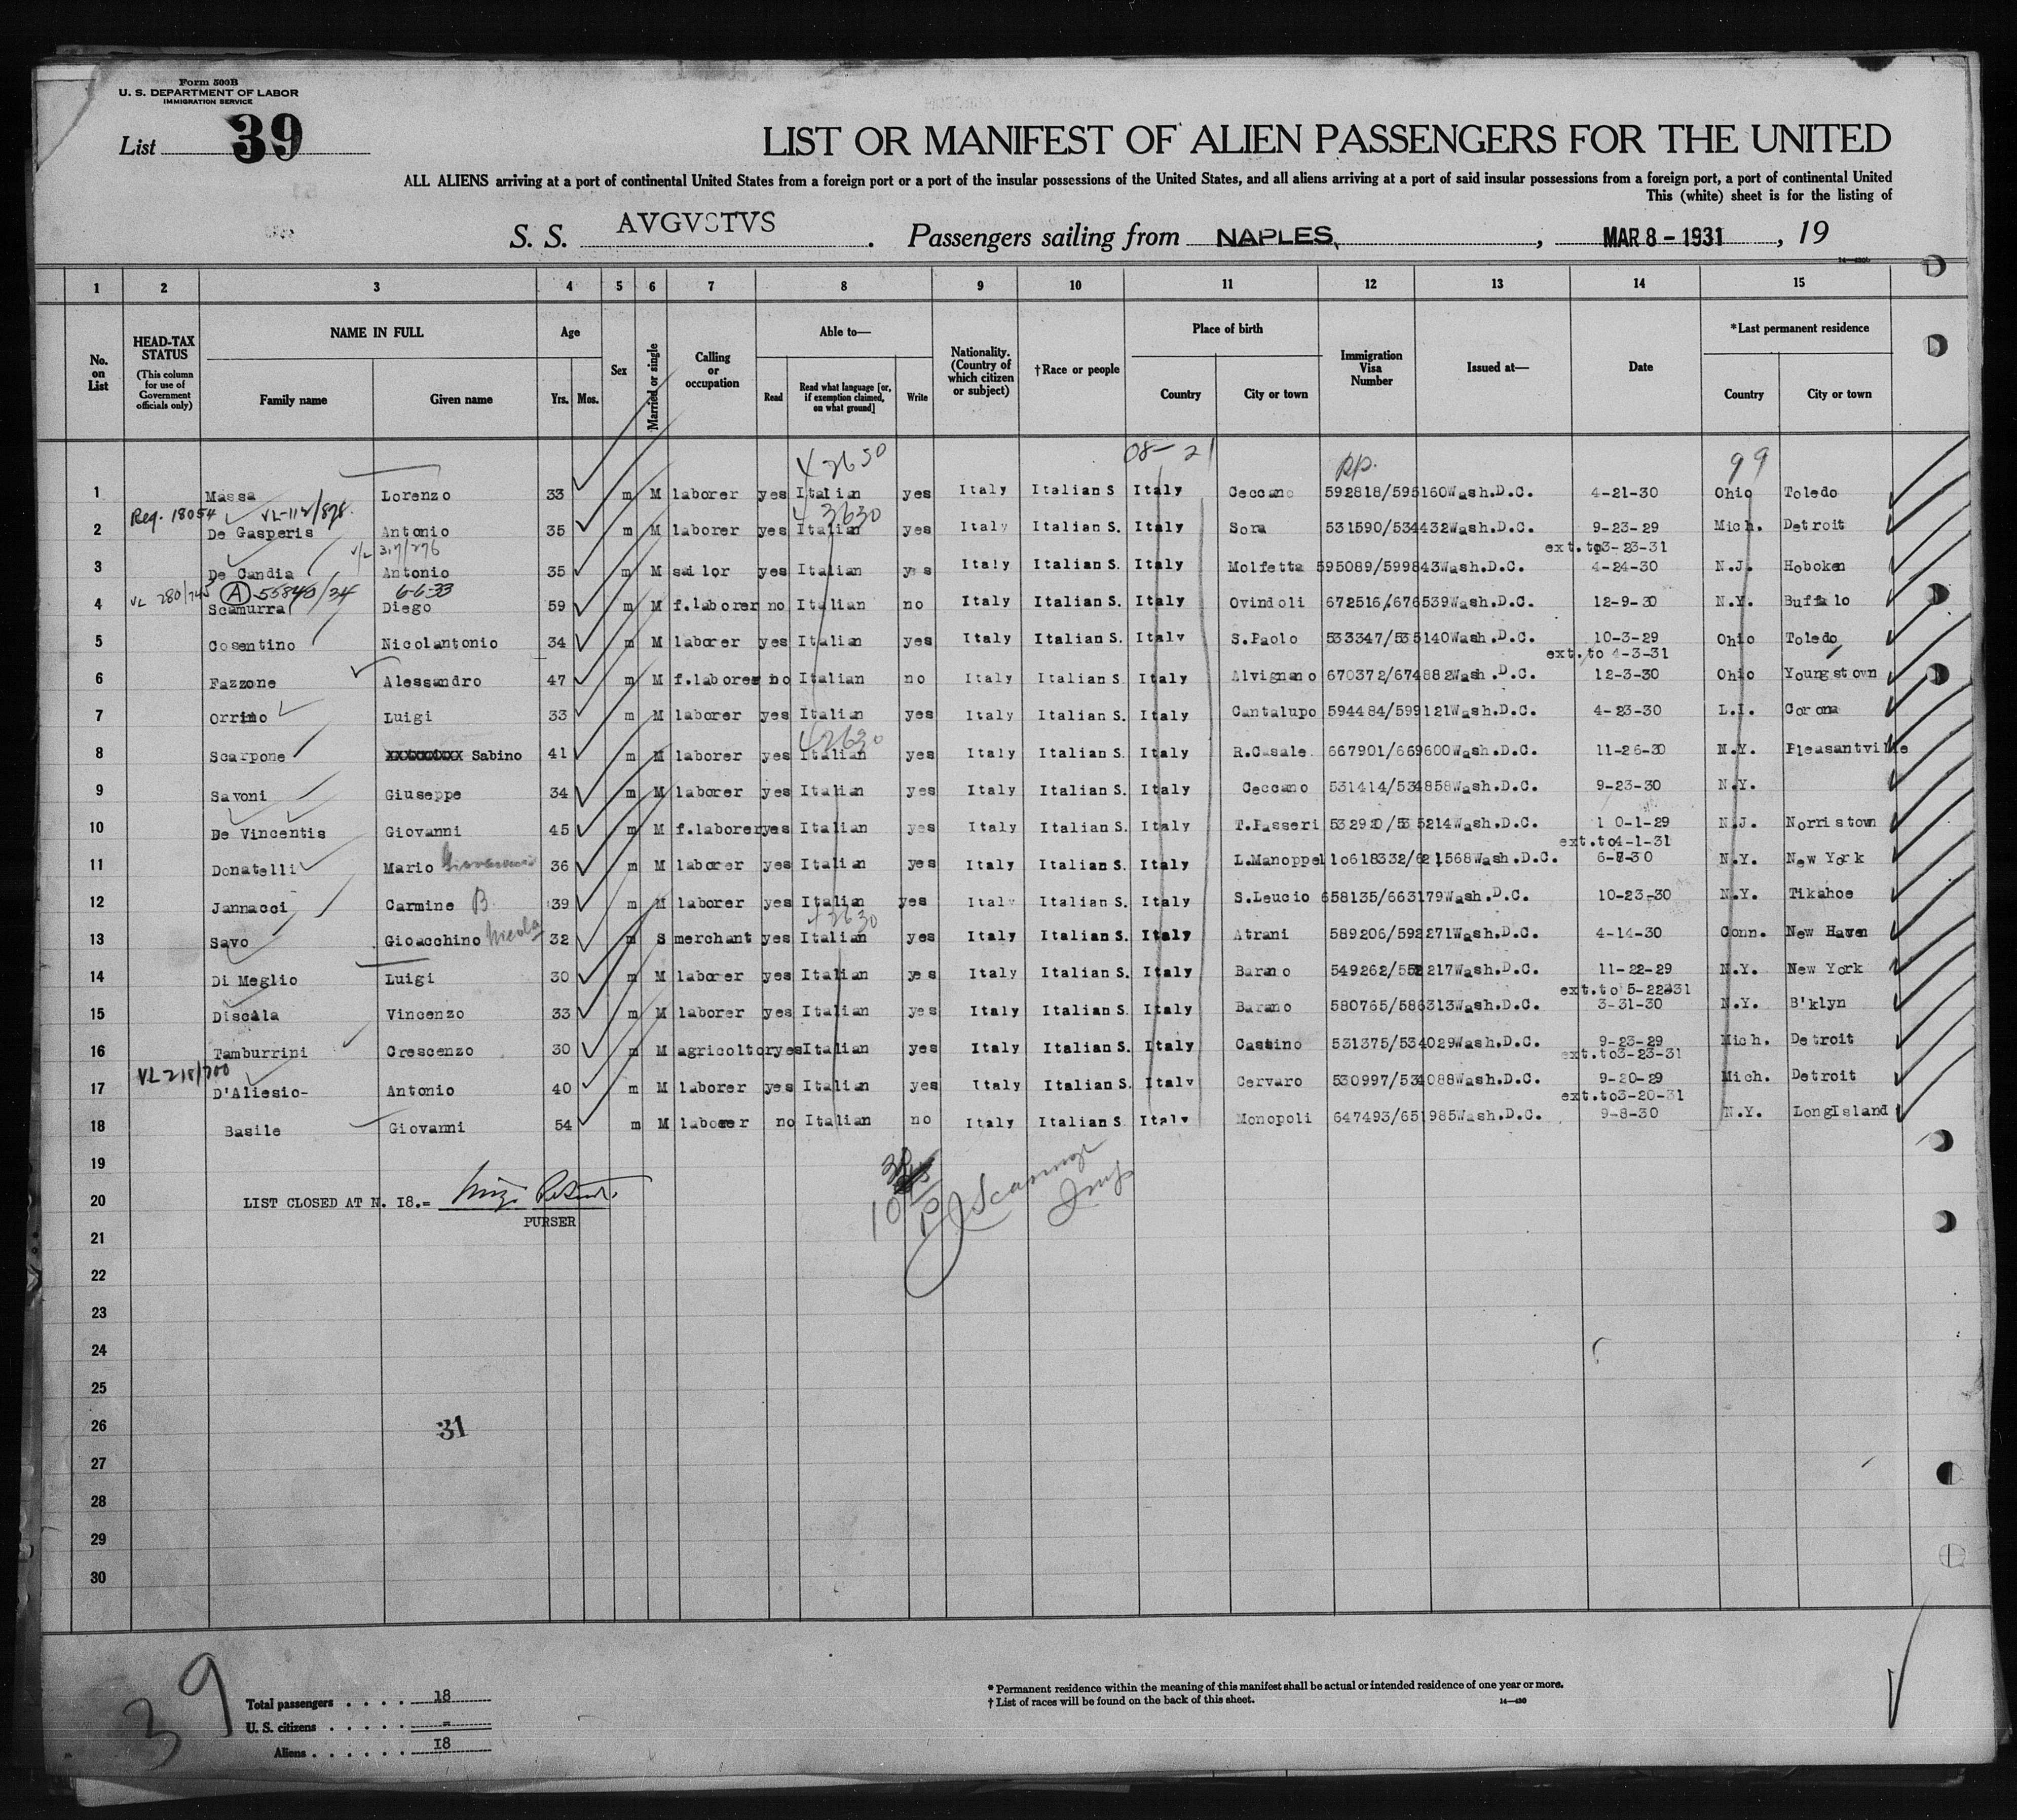 Form 500B
U. S. DEPARTMENT OF LABOR
IMMIGRATION SERVICE
List 39
LIST OR MANIFEST OF ALIEN PASSENGERS FOR THE UNITED
ALL ALIENS arriving at a port of continental United States from a foreign port or a port of the insular possessions of the United States, and all aliens arriving at a port of said insular possessions from a foreign port, a port of continental United
This (white) sheet is for the listing of
S. S. AVGVSTVS. Passengers sailing from NAPLES, , MAR 8 - 1931, 19
1 2 3 4 5 6 7 8 9 10 11 12 13 14 15
No. on List
HEAD-TAX STATUS (This column for use of Government officials only)
NAME IN FULL
Family name Given name
Age
Yrs. Mos.
Sex
Married or single
Calling or occupation
Able to—
Read Read what language [or, if exemption claimed, on what ground] Write
Nationality. (Country of which citizen or subject)
†Race or people
Place of birth
Country City or town
Immigration Visa Number
Issued at—
Date
*Last permanent residence
Country City or town
42630 08-21 99
1 Massa Lorenzo 33 m M laborer yes Italian yes Italy Italian S Italy Ceccano 592818/595160 Wash.D.C. 4-21-30 Ohio Toledo
Reg. 18054 VL-112/898 43630
2 De Gasperis Antonio 35 m M laborer yes Italian yes Italy Italian S. Italy Sora 531590/534432 Wash.D.C. 9-23-29 Mich. Detroit
V/L 317/276 ext.to 3-23-31
3 De Candia Antonio 35 m M sailor yes Italian yes Italy Italian S. Italy Molfetta 595089/599843 Wash.D.C. 4-24-30 N.J. Hoboken
VL 280/745 A 55840/34 6-6-33
4 Scamurra Diego 59 m M f.laborer no Italian no Italy Italian S. Italy Ovindoli 672516/676539 Wash.D.C. 12-9-30 N.Y. Buffalo
5 Cosentino Nicolantonio 34 m M laborer yes Italian yes Italy Italian S. Italy S.Paolo 533347/535140 Wash.D.C. 10-3-29 Ohio Toledo
ext.to 4-3-31
6 Fazzone Alessandro 47 m M f.laborer no Italian no Italy Italian S Italy Alvignano 670372/674882 Wash.D.C. 12-3-30 Ohio Youngstown
7 Orrino Luigi 33 m M laborer yes Italian yes Italy Italian S. Italy Cantalupo 594484/599121 Wash.D.C. 4-23-30 L.I. Corona
42630
8 Scarpone Sabino 41 m M laborer yes Italian yes Italy Italian S. Italy R.Casale 667901/669600 Wash.D.C. 11-26-30 N.Y. Pleasantville
9 Savoni Giuseppe 34 m M laborer yes Italian yes Italy Italian S. Italy Ceccano 531414/534858 Wash.D.C. 9-23-30 N.Y.
10 De Vincentis Giovanni 45 m M f.laborer yes Italian yes Italy Italian S. Italy T.Passeri 532920/535214 Wash.D.C. 10-1-29 N.J. Norristown
ext.to 4-1-31
11 Donatelli Mario Giovanni 36 m M laborer yes Italian yes Italy Italian S. Italy L.Manoppello 618332/621568 Wash.D.C. 6-8-30 N.Y. New York
12 Jannacci Carmine B. 39 m M laborer yes Italian yes Italy Italian S. Italy S.Leucio 658135/663179 Wash.D.C. 10-23-30 N.Y. Tikahoe
42630
13 Savo Gioacchino Nicola 32 m S merchant yes Italian yes Italy Italian S. Italy Atrani 589206/592271 Wash.D.C. 4-14-30 Conn. New Haven
14 Di Meglio Luigi 30 m M laborer yes Italian yes Italy Italian S. Italy Barano 549262/552217 Wash.D.C. 11-22-29 N.Y. New York
ext.to 5-22-31
15 Discala Vincenzo 33 m M laborer yes Italian yes Italy Italian S. Italy Barano 580765/586313 Wash.D.C. 3-31-30 N.Y. B'klyn
16 Tamburrini Crescenzo 30 m M agricoltor yes Italian yes Italy Italian S. Italy Cassino 531375/534029 Wash.D.C. 9-23-29 Mich. Detroit
VL 218/700 ext.to 3-23-31
17 D'Aliesio- Antonio 40 m M laborer yes Italian yes Italy Italian S. Italy Cervaro 530997/534088 Wash.D.C. 9-20-29 Mich. Detroit
ext.to 3-20-31
18 Basile Giovanni 54 m M laborer no Italian no Italy Italian S Italy Monopoli 647493/651985 Wash.D.C. 9-8-30 N.Y. Long Island
19
20 LIST CLOSED AT N. 18.=
PURSER
21
22
23
24
25
26
31
27
28
29
30
39
Total passengers . . . . 18
U. S. citizens . . . . . -
Aliens . . . . . . 18
* Permanent residence within the meaning of this manifest shall be actual or intended residence of one year or more.
† List of races will be found on the back of this sheet.
14—430